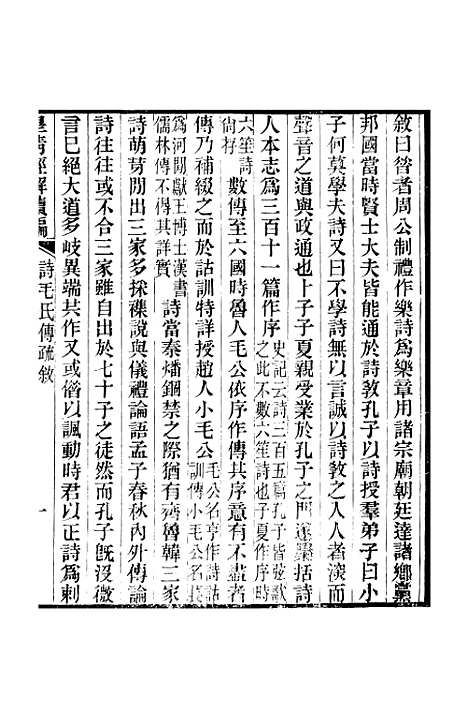 敘曰昔者周公制禮作樂詩爲樂章用諸宗廟朝廷達諸鄉黨
邦國當時賢士大夫皆能通於詩敎孔子以詩授羣弟子曰小
子何莫學夫詩又曰不學詩無以言誠以詩敎之入人者深而
聲音之道與政通也卜子子夏親受業於孔子之門遂櫽括詩
人本志爲三百十一篇作序史記云詩三百五篇孔子皆弦歌
之此不數六笙詩也子夏作序時
六笙詩
尙存數傳至六國時魯人毛公依序作傳其序意有不盡者
傳乃補綴之而於詁訓特詳授趙人小毛公毛公名亨作詩詁
訓傳小毛公名萇
爲河閒獻王博士漢書
儒林傳不得其詳實詩當秦燔錮禁之際猶有齊魯韓三家
詩萌芽閒出三家多採襍說與儀禮論語孟子春秋內外傳論
詩往往或不合三家雖自出於七十子之徒然而孔子旣沒微
言已絕大道多岐異端共作又或僭以諷動時君以正詩爲刺
皇淸經解續編
詩毛氏傳疏敘
一